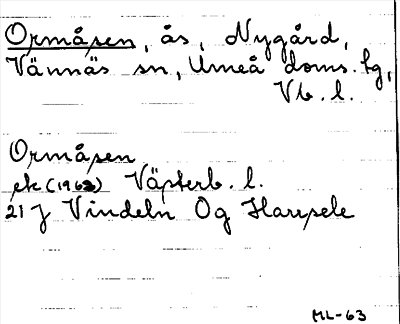 Ormåsen, ås, Nygård,
Vännäs sn, Umeå doms. hg,
Vb. l.
Ormåsen
ek (1963) Västerb. l.
21 J Vindeln Og Harrsele
ML-63